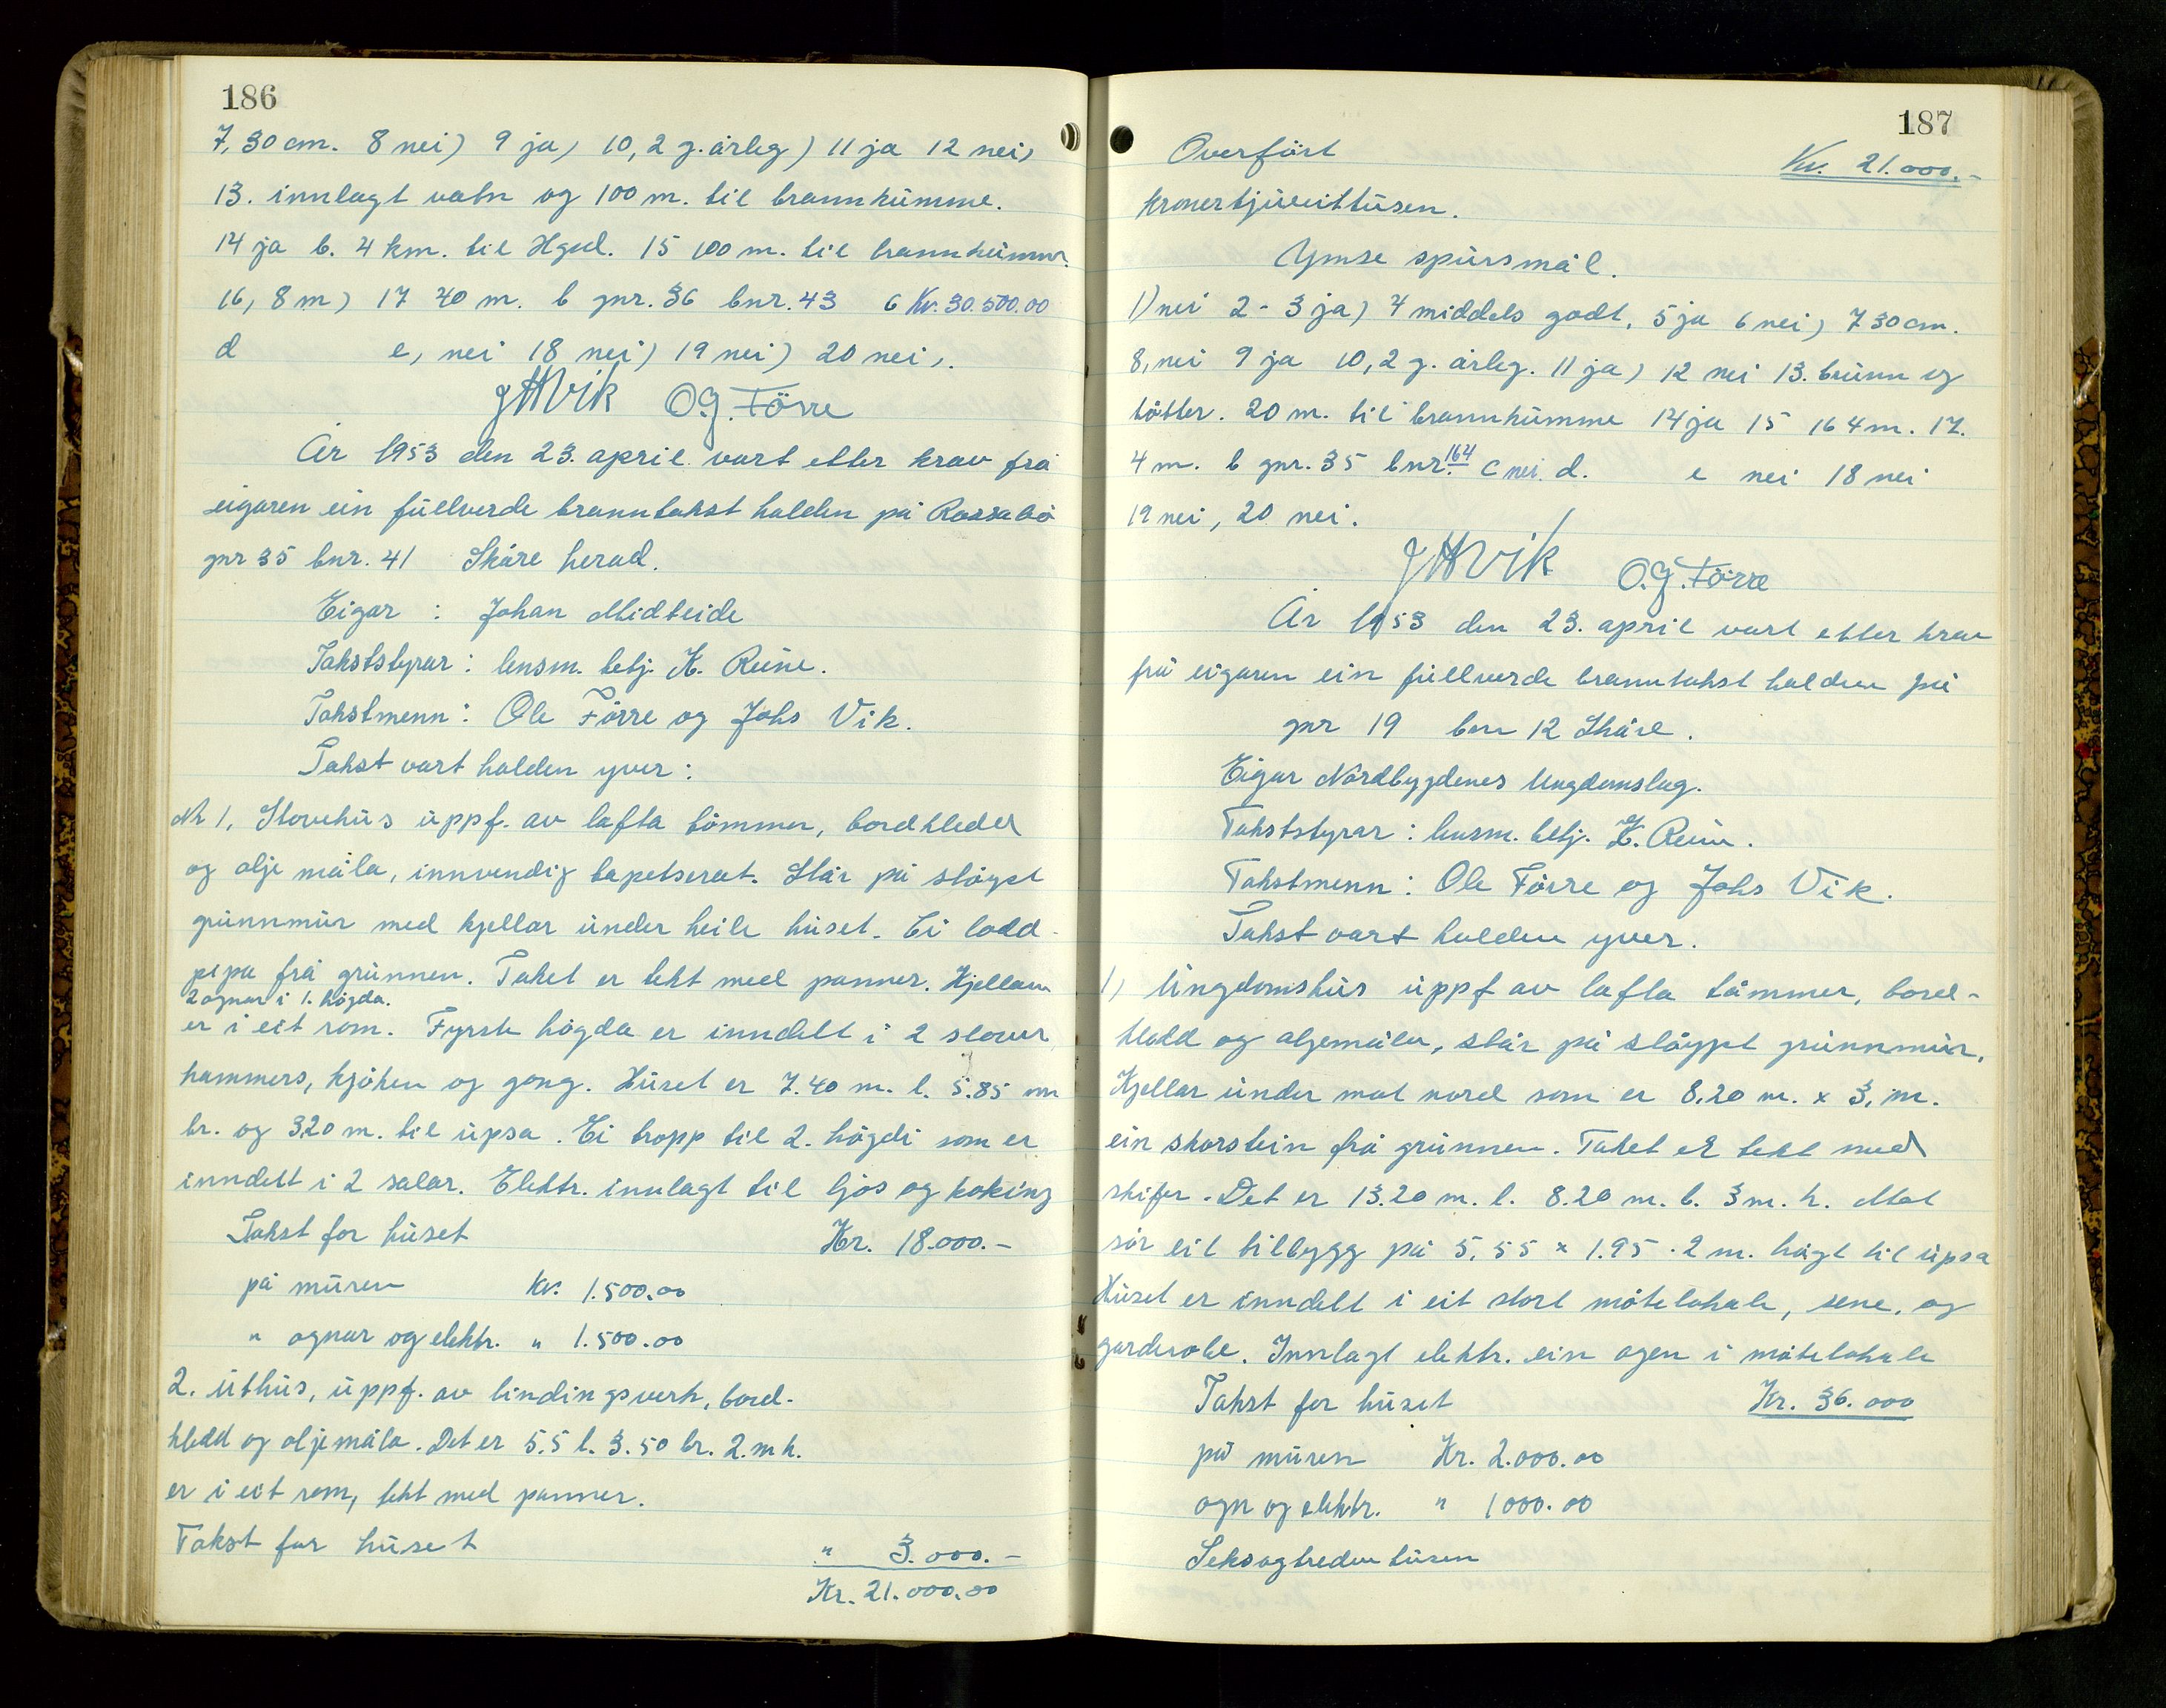 186
7, 30 cm. 8 nei) 9 ja) 10, 2 g. årleg) 11 ja 12 nei)
13. innlagt vatn og 100 m. til brannkumme.
14 ja b. 4 km. til Hgsd. 15 100 m. til brannkumme.
16, 8 m) 17 40 m. b gnr. 36 bnr. 43 6 Kr. 30.500.00
d e, nei 18 nei) 19 nei) 20 nei).
JHVik O.G. Förre
År 1953 den 23. april vart etter krav frå
eigaren ein fullverde branntakst halden på Rossabö
gnr 35 bnr. 41 Skåre herad.
Eigar : Johan Midteide
Takststyrar : lensm. betj. K. Reine.
Takstmenn : Ole Förre og Johs Vik.
Takst vart halden yver :
Nr 1, Stovehus uppf. av lafta tömmer, bordkleder
og olje måla, innvendig tapetserat. Står på stöypt
grunnmur med kjellar under heile huset. Ei lodd-
pipa frå grunnen. Taket er tekt med panner. Kjellaren
2 ognar i 1. högda.
er i eit rom. Fyrste högda er inndelt i 2 stover,
kammers, kjöken og gong. Huset er 7.40 m. l. 5.85 m
br. og 3.20 m. til upsa. Ei tropp til 2. högdi som er
inndelt i 2 salar. Elektr. innlagt til ljos og koking
Takst for huset Kr. 18.000.-
på muren Kr. 1.500.00
" ognar og elektr. " 1.500.00
2. uthus, uppf. av bindingsverk, bord-
kledd og oljemåla. Det er 5.5 l. 3.50 br. 2. m h.
er i eit rom, tekt med panner.
Takst for huset " 3.000.-
Kr. 21.000.00
187
Overfört Kr. 21.000.-
kronertjueeittusen.
Ymse spursmål.
1) nei 2 - 3 ja) 4 middels godt, 5 ja 6 nei) 7 30 cm.
8, nei 9 ja 10, 2 g. årleg. 11 ja) 12 nei 13. brunn og
bötter. 20 m. til brannkumme 14 ja 15 16 4 m. 17.
4 m. b gnr. 35 bnr. 164 c nei. d. e nei 18 nei
19 nei, 20 nei.
JHVik O.G. Förre
År 1953 den 23. april vart etter krav
frå eigaren ein fullverde branntakst halden på
gnr 19 bnr 12 Skåre.
Eigar Nordbygdenes Ungdomslag.
Takststyrar : lensm. betj. K. Reine.
Takstmenn : Ole Förre og Johs Vik.
Takst vart halden yver.
1) Ungdomshus uppf av lafta tömmer, bord-
kledd og oljemåla, står på stöypt grunnmur,
Kjellar under mot nord som er 8,20 m. x 3, m.
ein skorstein frå grunnen. Taket er tekt med
skifer. Det er 13.20 m. l. 8.20 m. b. 3 m. h. Mot
sör eit tilbygg på 5,55 x 1.95. 2 m. högt til upsa
Huset er inndelt i eit stort mötelokale, sene, og
garderobe. Innlagt elektr. ein ogn i mötelokale
Takst for huset Kr. 36.000
på muren Kr. 2.000.00
ogn og elektr. " 1000.00
Seksogtredve tusen